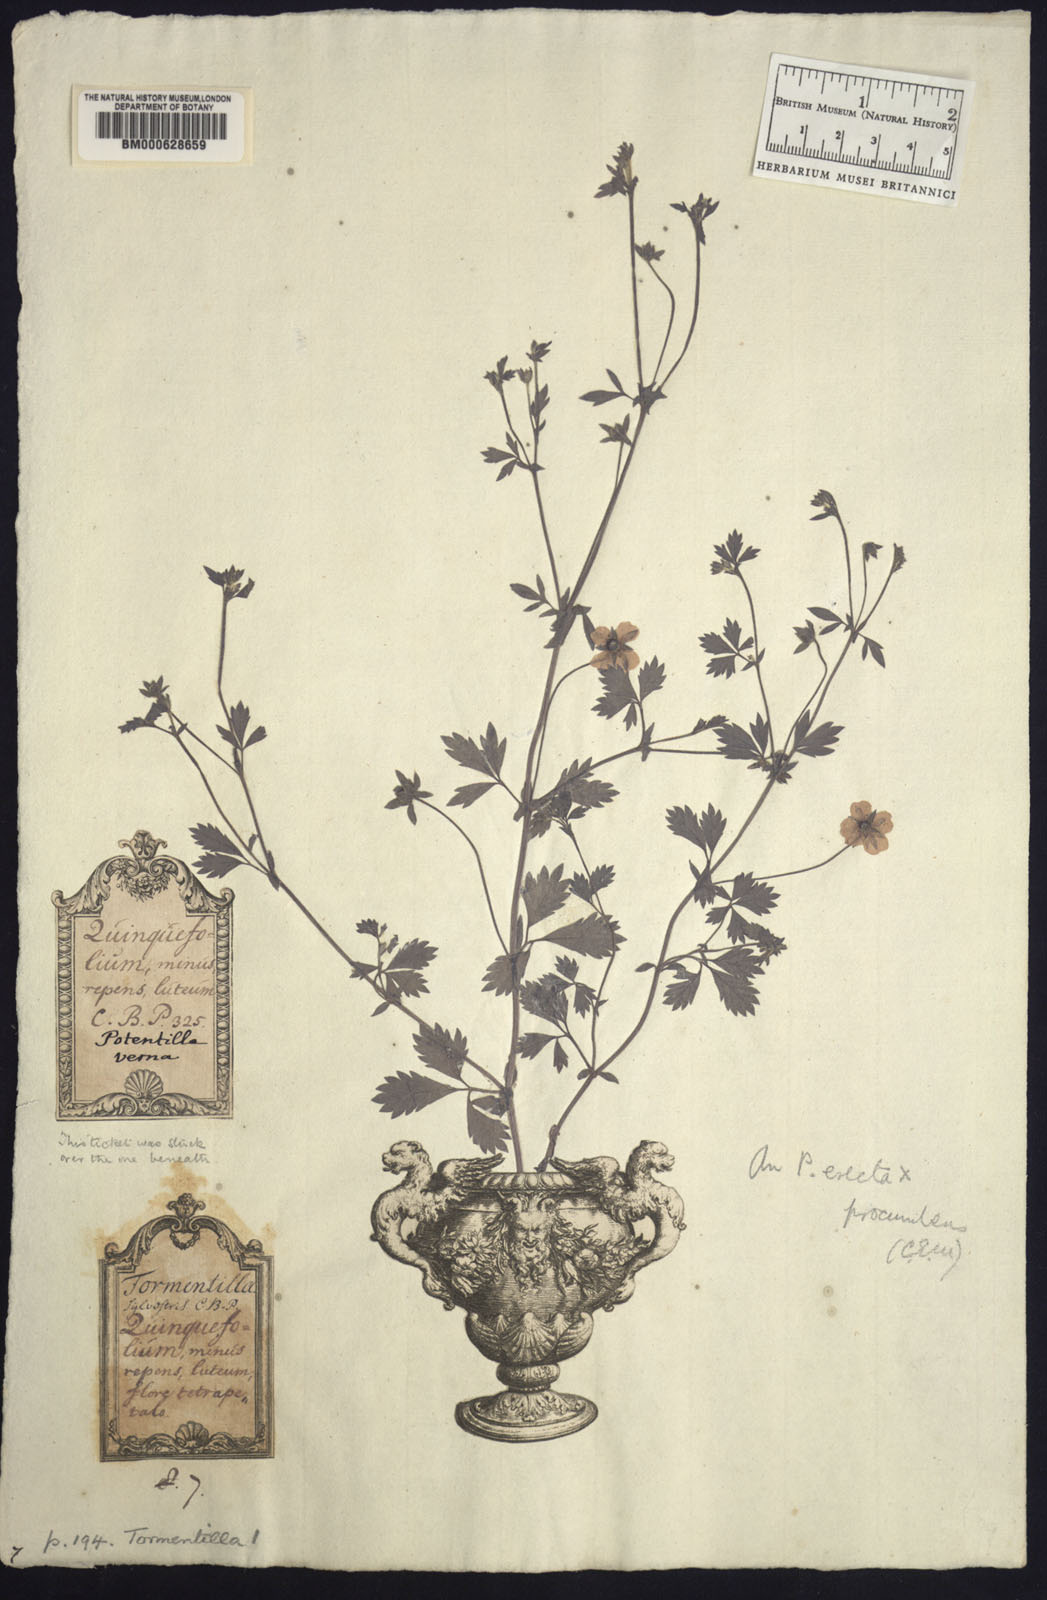 THE NATURAL HISTORY MUSEUM, LONDON
DEPARTMENT OF BOTANY
BM000628659
1 2
BRITISH MUSEUM (NATURAL HISTORY)
1 2 3 4 5
HERBARIUM MUSEI BRITANNICI
Quinquefo-
lium, minus,
repens, luteum
C. B. P. 325.
Potentilla
verna
This ticket was stuck
over the one beneath.
An P. erecta x
procumbens
Tormentilla
sylvestris C. B. P.
Quinquefo-
lium, minus
repens, luteum,
flore tetrape-
talo.
8. 7.
7 p. 194. Tormentilla 1